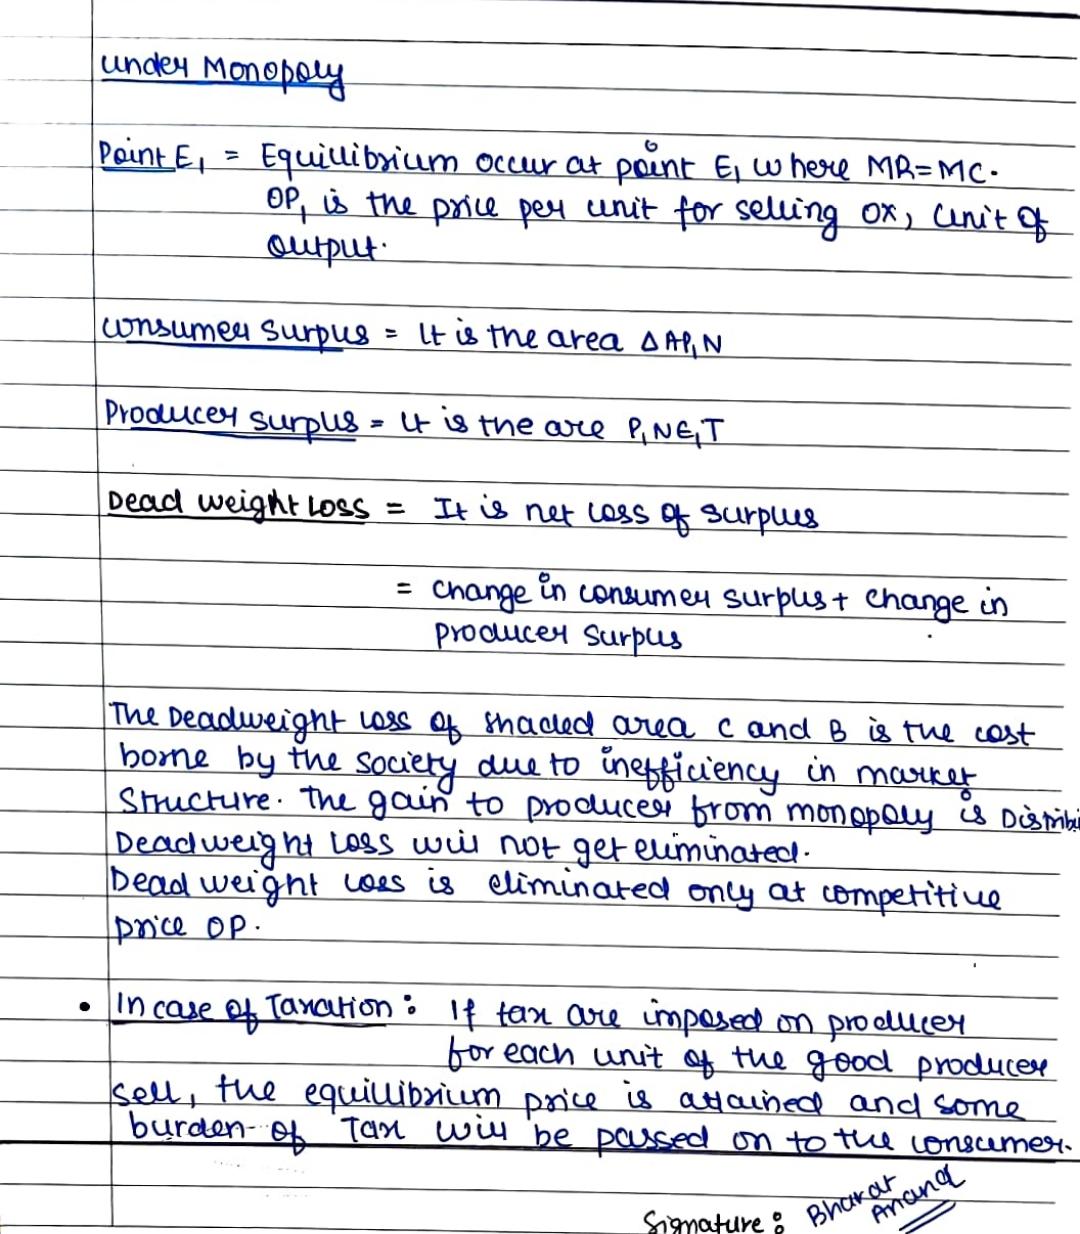 under Monopoly
Point E₁ = Equillibrium occur at point E₁ where MR=MC.
OP₁ is the price per unit for selling OX₁ unit of
output.
consumer surpus = It is the area △AP₁N
Producer surpus = It is the are P₁NE₁T
Dead weight Loss = It is net loss of surplus
= change in consumer surplus + change in
producer surpus
The Deadweight loss of shaded area C and B is the cost
borne by the society due to inefficiency in market
Structure. The gain to producer from monopoly is Distribu
Deadweight Loss will not get eliminated.
Dead weight loss is eliminated only at competitive
price OP.
• In case of Taxation: If tax are imposed on producer
for each unit of the good producer
sell, the equillibrium price is attained and some
burden of Tax will be passed on to the consumer.
Signature: Bharat
Anand